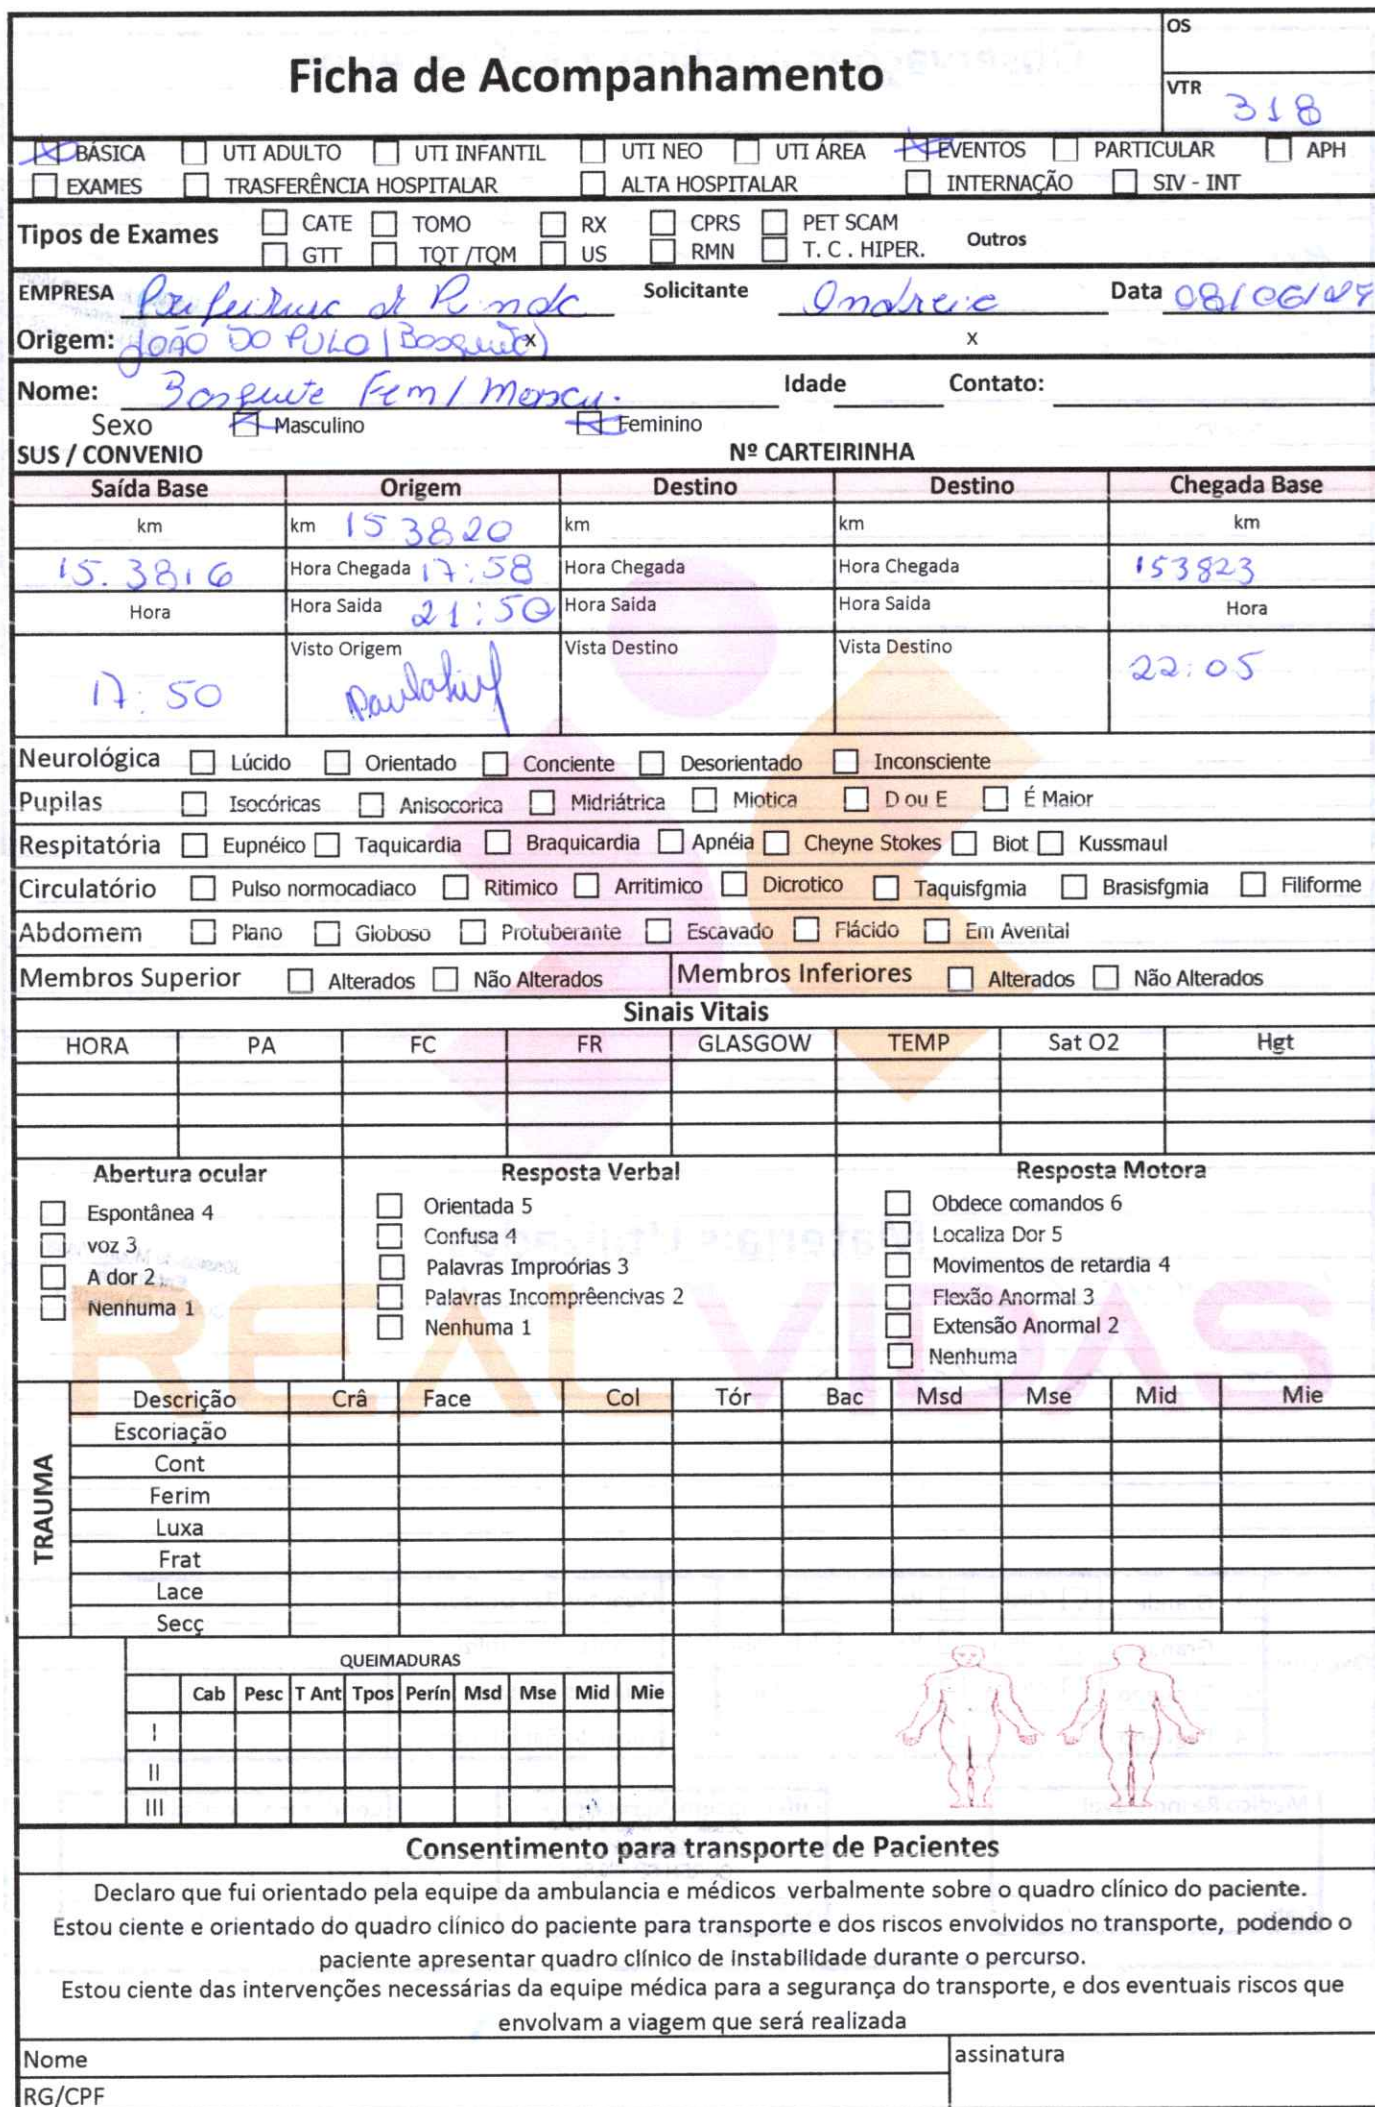 Ficha de Acompanhamento
OS
VTR 318
BÁSICA UTI ADULTO UTI INFANTIL UTI NEO UTI ÁREA EVENTOS PARTICULAR APH
EXAMES TRASFERÊNCIA HOSPITALAR ALTA HOSPITALAR INTERNAÇÃO SIV - INT
Tipos de Exames CATE TOMO RX CPRS PET SCAM Outros
GTT TQT /TQM US RMN T. C . HIPER.
EMPRESA Prefeitura de Pinda Solicitante Andreia Data 08/06/
Origem: JOÃO DO PULO (Bosquete) x x
Nome: Basquete Fem/ Mascu. Idade Contato:
Sexo Masculino Feminino
SUS / CONVENIO Nº CARTEIRINHA
Saída Base Origem Destino Destino Chegada Base
km km 153820 km km km
15.3816 Hora Chegada 17:58 Hora Chegada Hora Chegada 153823
Hora Hora Saida 21:50 Hora Saida Hora Saida Hora
17:50 Visto Origem Vista Destino Vista Destino 22:05
Neurológica Lúcido Orientado Conciente Desorientado Inconsciente
Pupilas Isocóricas Anisocorica Midriátrica Miotica D ou E É Maior
Respitatória Eupnéico Taquicardia Braquicardia Apnéia Cheyne Stokes Biot Kussmaul
Circulatório Pulso normocadiaco Ritimico Arritimico Dicrotico Taquisfgmia Brasisfgmia Filiforme
Abdomem Plano Globoso Protuberante Escavado Flácido Em Avental
Membros Superior Alterados Não Alterados Membros Inferiores Alterados Não Alterados
Sinais Vitais
HORA PA FC FR GLASGOW TEMP Sat O2 Hgt
Abertura ocular Resposta Verbal Resposta Motora
Espontânea 4 Orientada 5 Obdece comandos 6
voz 3 Confusa 4 Localiza Dor 5
A dor 2 Palavras Improórias 3 Movimentos de retardia 4
Nenhuma 1 Palavras Incomprêencivas 2 Flexão Anormal 3
Nenhuma 1 Extensão Anormal 2
Nenhuma
REAL VIDAS
TRAUMA
Descrição Crâ Face Col Tór Bac Msd Mse Mid Mie
Escoriação
Cont
Ferim
Luxa
Frat
Lace
Secç
QUEIMADURAS
Cab Pesc T Ant Tpos Perín Msd Mse Mid Mie
I
II
III
Consentimento para transporte de Pacientes
Declaro que fui orientado pela equipe da ambulancia e médicos verbalmente sobre o quadro clínico do paciente.
Estou ciente e orientado do quadro clínico do paciente para transporte e dos riscos envolvidos no transporte, podendo o
paciente apresentar quadro clínico de instabilidade durante o percurso.
Estou ciente das intervenções necessárias da equipe médica para a segurança do transporte, e dos eventuais riscos que
envolvam a viagem que será realizada
Nome assinatura
RG/CPF